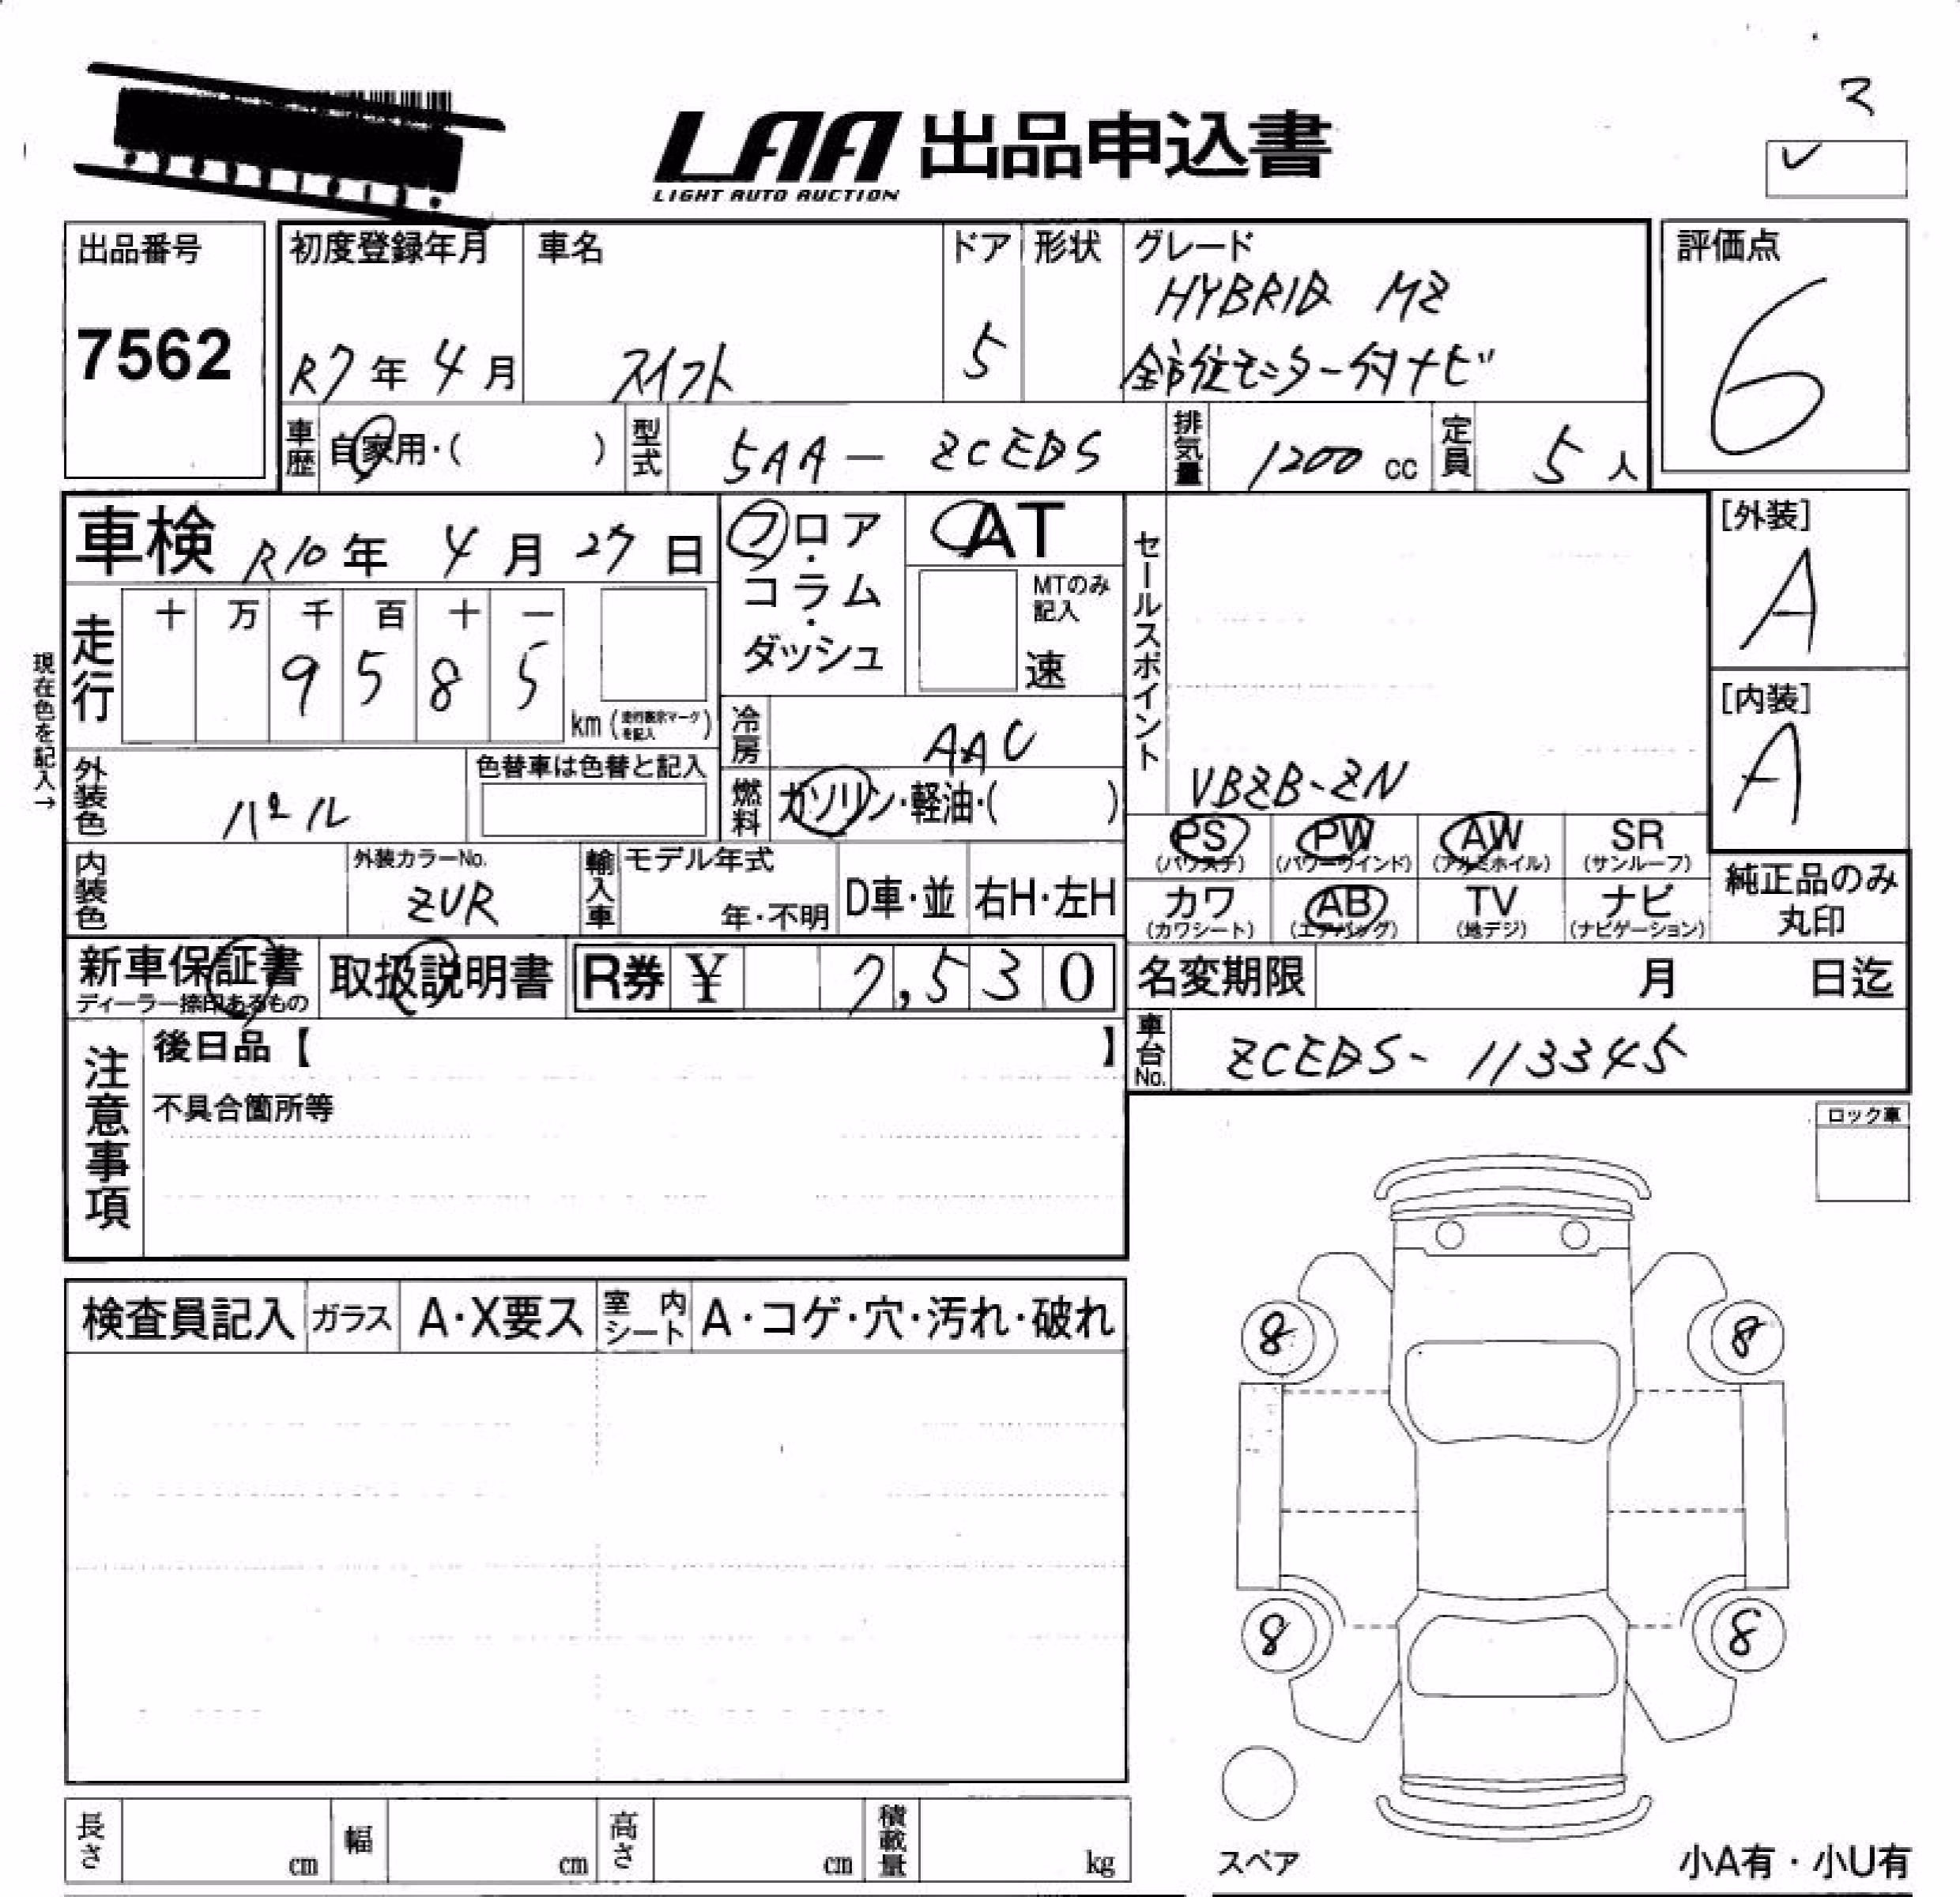 LAA 出品申込書
LIGHT AUTO AUCTION
出品番号
7562
初度登録年月
R7年 4月
車名
スイフト
ドア
5
形状
グレード
HYBRID MZ
全方位モニター付ナビ
評価点
6
車歴 自家用・( )
型式 5AA－ZCEDS
排気量 1200 cc
定員 5 人
車検 R10年 4月 27日
フロア・コラム・ダッシュ
AT
MTのみ記入
速
セールスポイント
VBZB-ZN
[外装]
A
[内装]
A
現在色を記入→
走行
十 万 千 百 十 一
9 5 8 5
km (走行表示マークを記入)
冷房 AAC
外装色 パール
色替車は色替と記入
燃料 ガソリン・軽油・( )
PS (パワステ)
PW (パワーウインド)
AW (アルミホイル)
SR (サンルーフ)
カワ (カワシート)
AB (エアバッグ)
TV (地デジ)
ナビ (ナビゲーション)
純正品のみ丸印
内装色
外装カラーNo.
ZUR
輸入車
モデル年式
年・不明
D車・並
右H・左H
新車保証書
ディーラー捺印あるもの
取扱説明書
R券 ¥ 7,530
名変期限 月 日迄
車台No. ZCEDS-113345
注意事項
後日品【 】
不具合箇所等
ロック車
検査員記入
ガラス A・X要ス
室内シート A・コゲ・穴・汚れ・破れ
8 8
8 8
スペア
小A有・小U有
長さ cm
幅 cm
高さ cm
積載量 kg